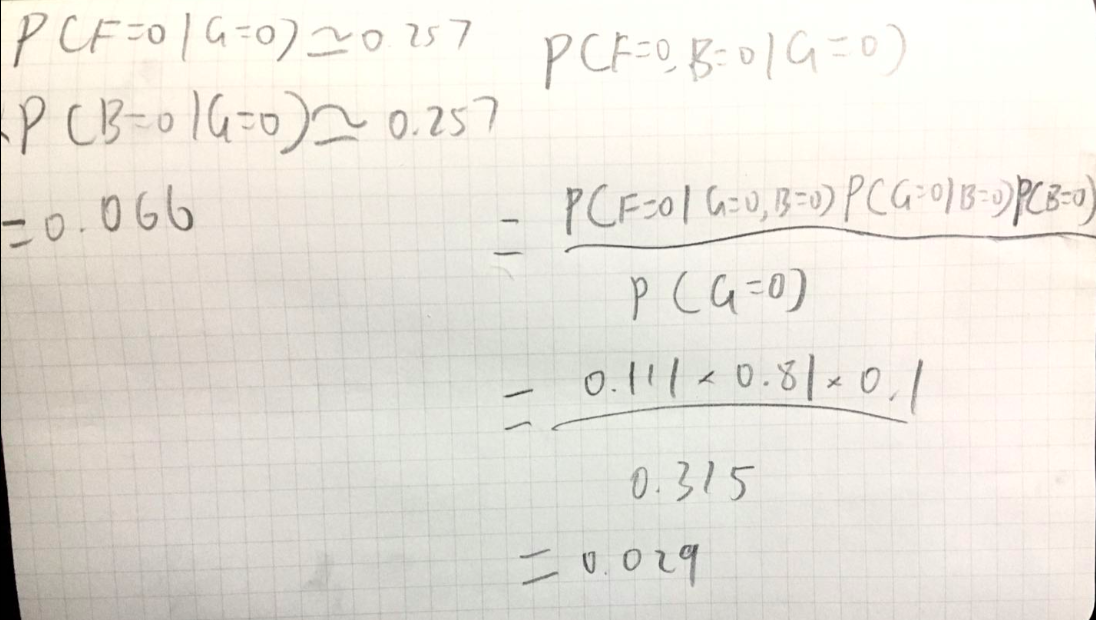 P(F=0|G=0)≃0.257
P(B=0|G=0)≃0.257
=0.066
P(F=0,B=0|G=0)
= P(F=0|G=0,B=0)P(G=0|B=0)P(B=0)
P(G=0)
= 0.111×0.81×0.1
0.315
=0.029